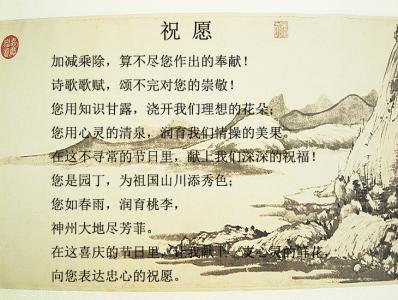 祝愿
加减乘除，算不尽您作出的奉献！
诗歌歌赋，颂不完对您的崇敬！
您用知识甘露，浇开我们理想的花朵；
您用心灵的清泉，润育我们情操的美果。
在这不寻常的节日里，献上我们深深的祝福！
您是园丁，为祖国山川添秀色；
您如春雨，润育桃李，
神州大地尽芳菲。
在这喜庆的节日里，让我献上一支心灵的鲜花，
向您表达忠心的祝愿。